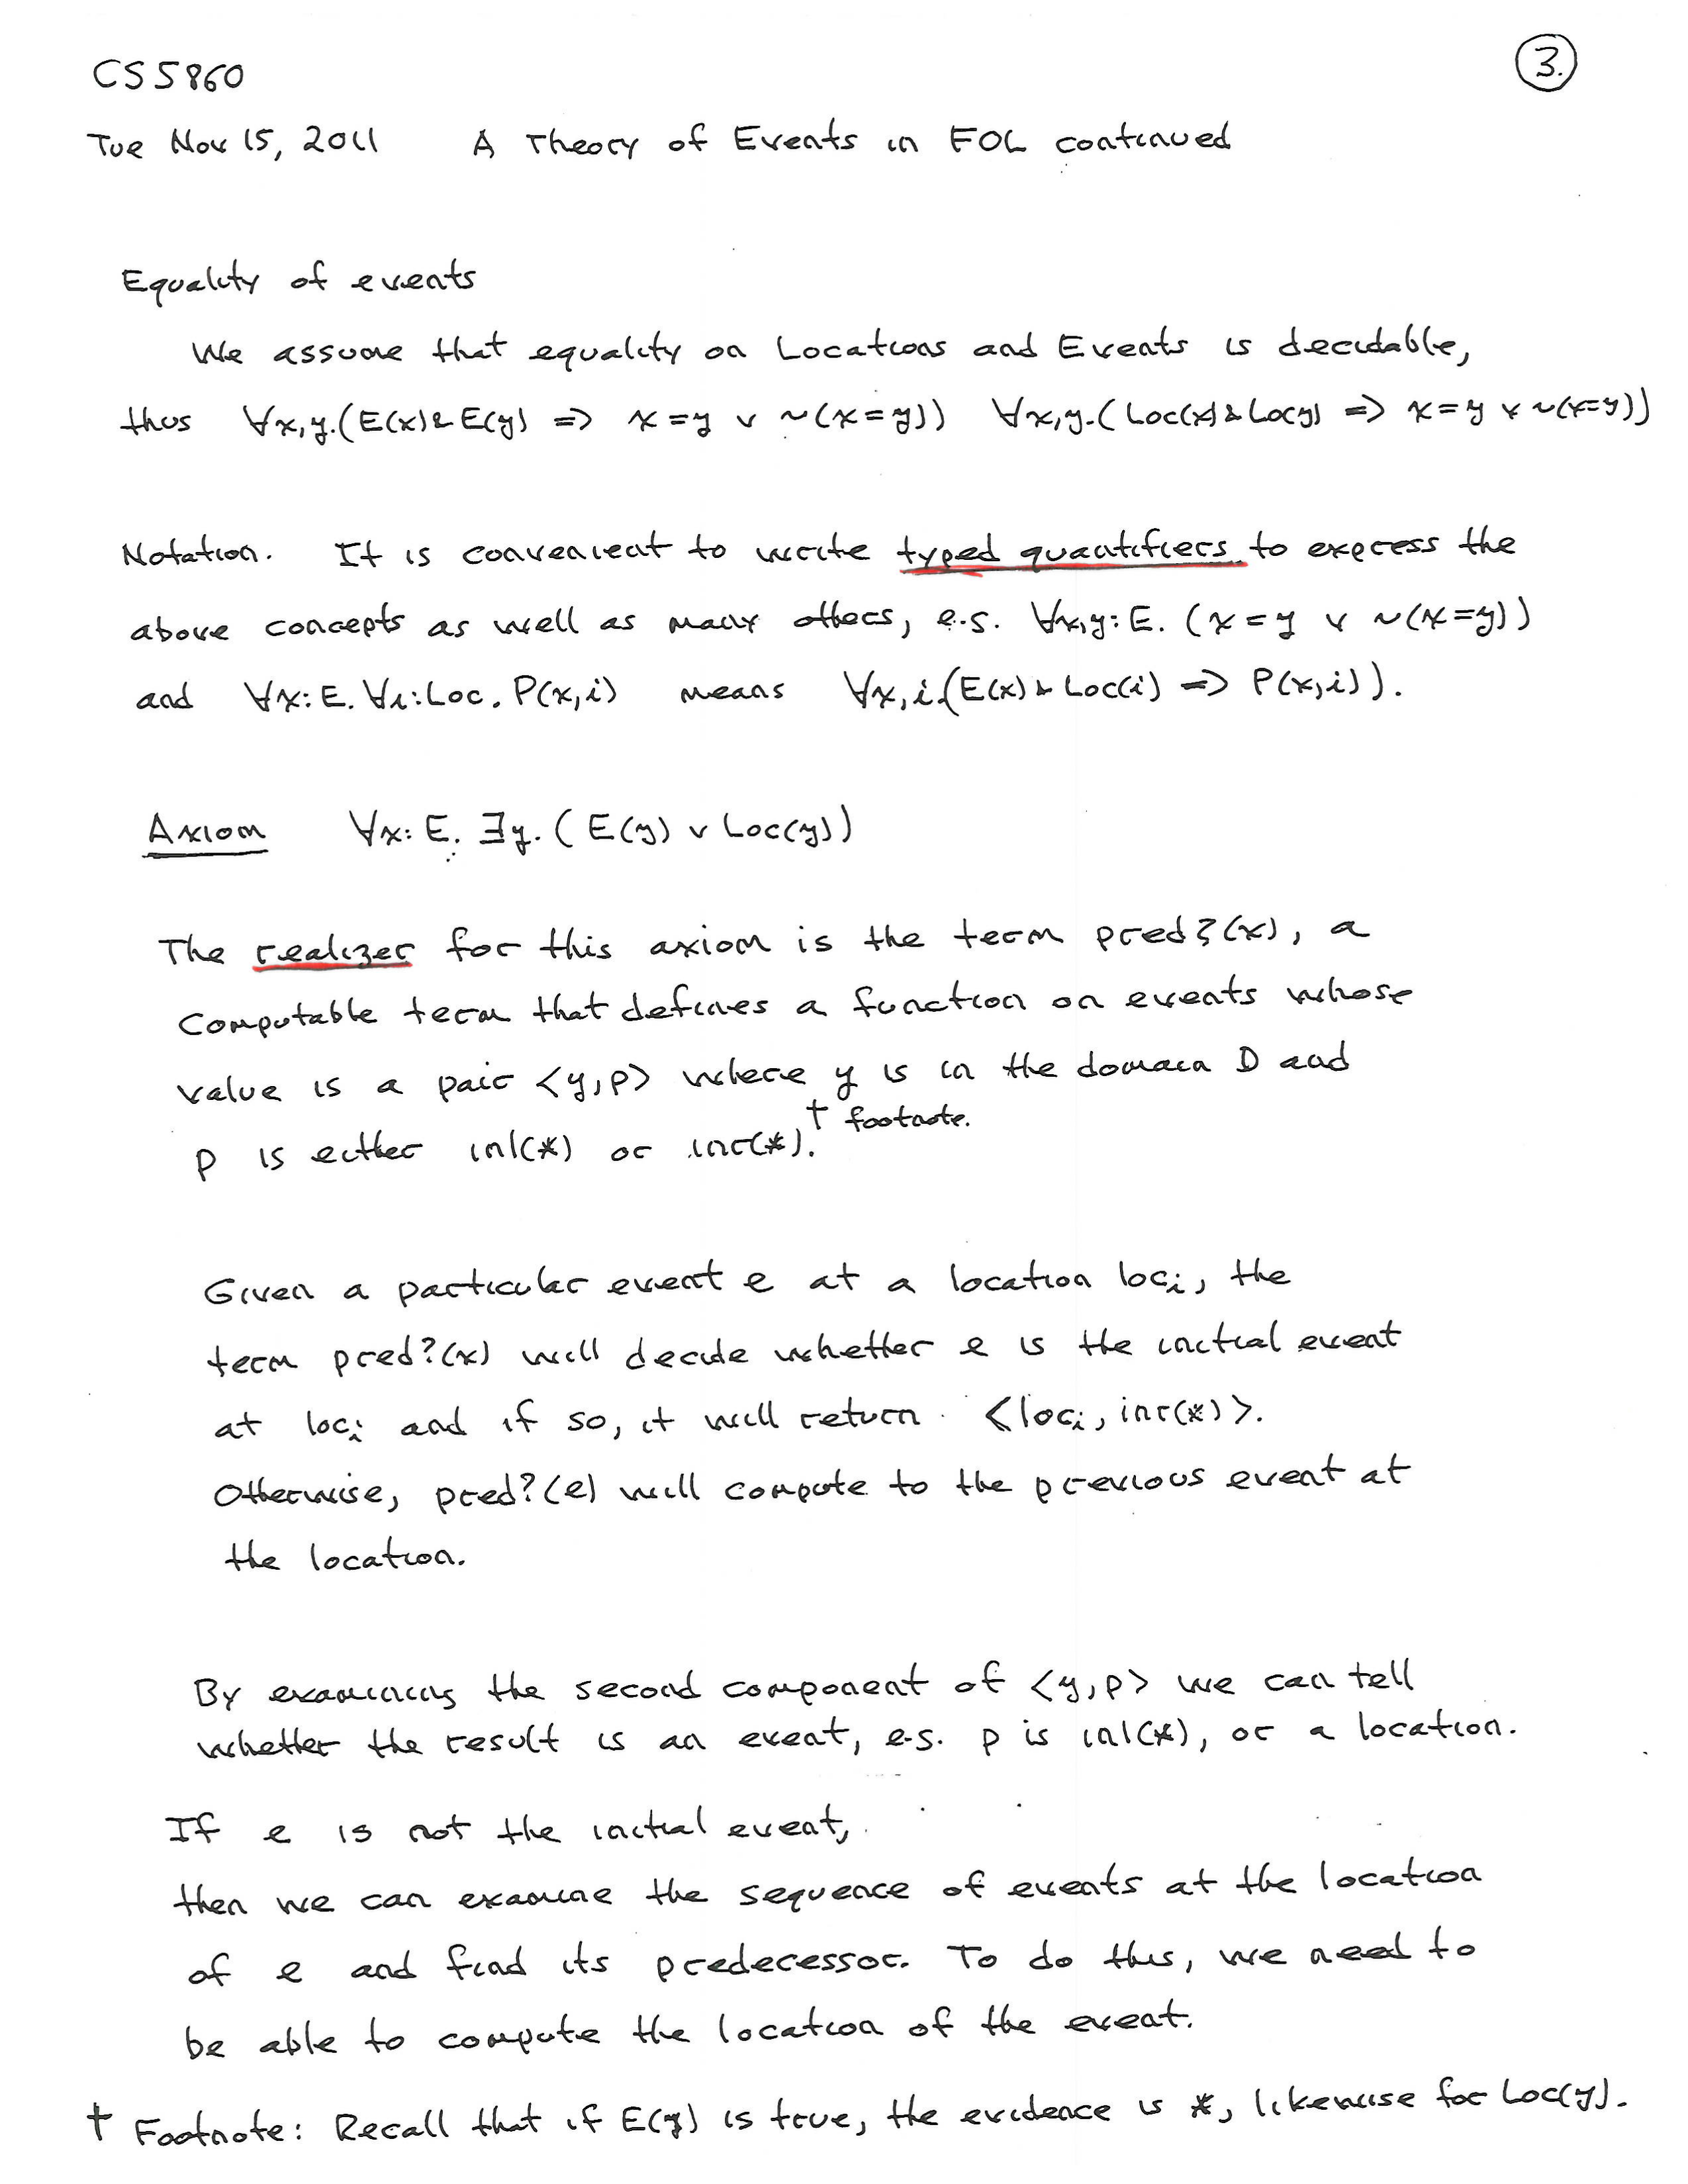 CS 5860
3.
Tue Nov 15, 2011 A Theory of Events in FOL continued
Equality of events
We assume that equality on Locations and Events is decidable,
thus ∀x,y.(E(x) & E(y) => x = y ∨ ~(x = y)) ∀x,y.(Loc(x) & Loc(y) => x = y ∨ ~(x=y))
Notation. It is convenient to write typed quantifiers to express the
above concepts as well as many others, e.g. ∀x,y:E. (x = y ∨ ~(x = y))
and ∀x:E. ∀i:Loc. P(x,i) means ∀x,i.(E(x) & Loc(i) => P(x,i)).
Axiom ∀x:E. ∃y. (E(y) ∨ Loc(y))
The realizer for this axiom is the term pred?(x), a
computable term that defines a function on events whose
value is a pair <y,p> where y is in the domain D and
p is either inl(*) or inr(*).† footnote.
Given a particular event e at a location loc_i, the
term pred?(x) will decide whether e is the initial event
at loc_i and if so, it will return <loc_i, inr(*)>.
Otherwise, pred?(e) will compute to the previous event at
the location.
By examining the second component of <y,p> we can tell
whether the result is an event, e.g. p is inl(*), or a location.
If e is not the initial event,
then we can examine the sequence of events at the location
of e and find its predecessor. To do this, we need to
be able to compute the location of the event.
† Footnote: Recall that if E(y) is true, the evidence is *, likewise for Loc(y).